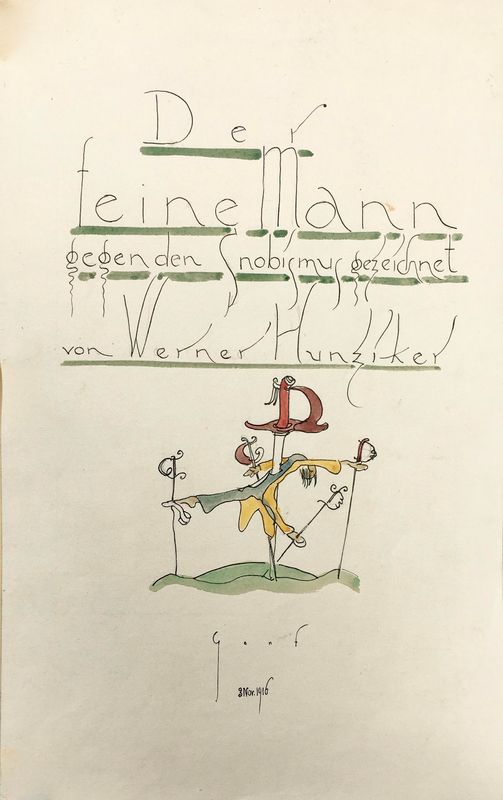 Der
feine Mann
gegen den Snobismus gezeichnet
von Werner Hunziker
Genf
3 Nov. 1916